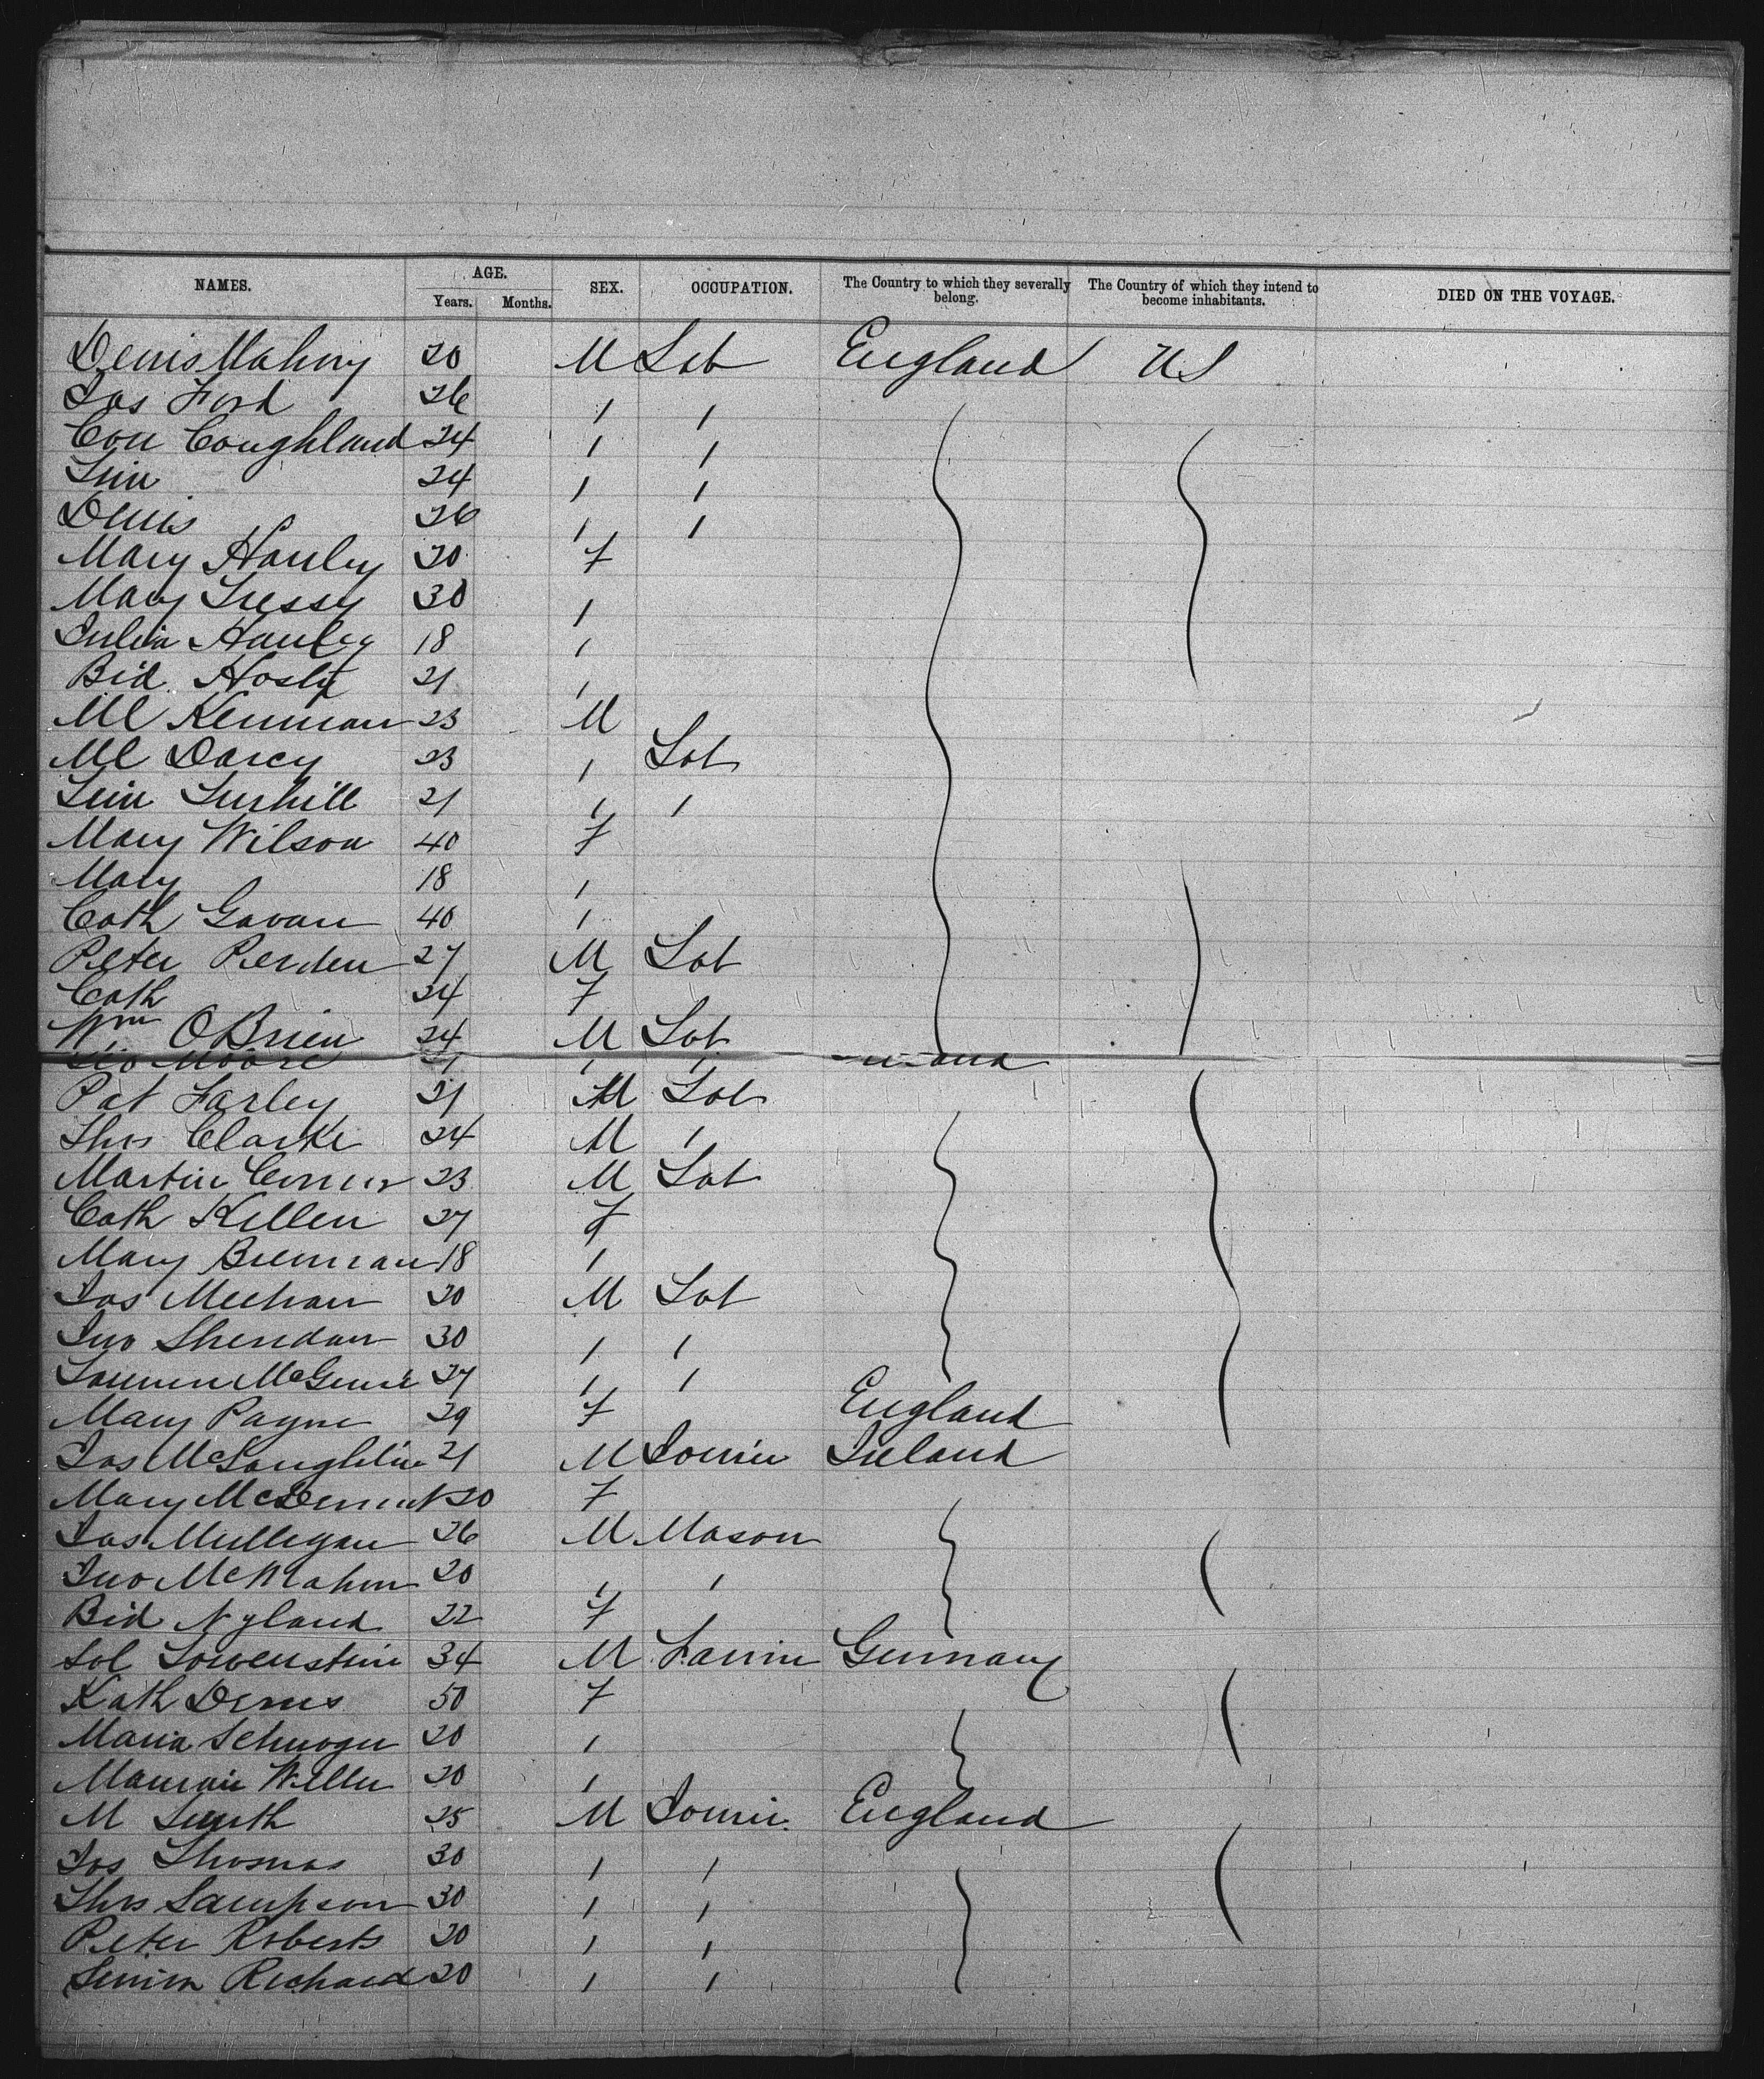 NAMES. AGE. Years. Months. SEX. OCCUPATION. The Country to which they severally belong. The Country of which they intend to become inhabitants. DIED ON THE VOYAGE.
Denis Mahony 20 M Lab England US
Jas Ford 26 1 1
Con Coughland 24 1 1
Jim 24 1 1
Denis 26 1 1
Mary Hanley 20 F
Mary 30 1
Julia Hanley 18 1
Bid Hosty 21 1
Ml Kennan 23 M
Ml Darcy 23 1 Lab
Jim 21 1 1
Mary Wilson 40 F
Mary 18 1
Cath Gavan 40 1
Peter 27 M Lab
Cath 24 F
Wm OBrien 24 M Lab
Geo Moore 21 1 1
Pat Farley 21 M Lab
Thos Clarke 24 M 1
Martin Connor 23 M Lab
Cath Killen 27 F
Mary Brennan 18 1
Jas Meehan 20 M Lab
Jno Sheridan 30 1 1
McGuire 27 1 1
Mary Payne 29 F England
Jas McLaughlin 21 M Joiner Ireland
Mary McDermot 20 F
Jas Mulligan 26 M Mason
Jno McMahon 20 1 1
Bid Nyland 22 F 1
Sol Lowenstein 34 M Farmer Germany
Kath 50 F
Maria 20 1
Weller 20 1
M Smith 25 M Joiner England
Jos Thomas 30 1 1
Thos Sampson 30 1 1
Peter Roberts 20 1 1
Simon Richard 20 1 1